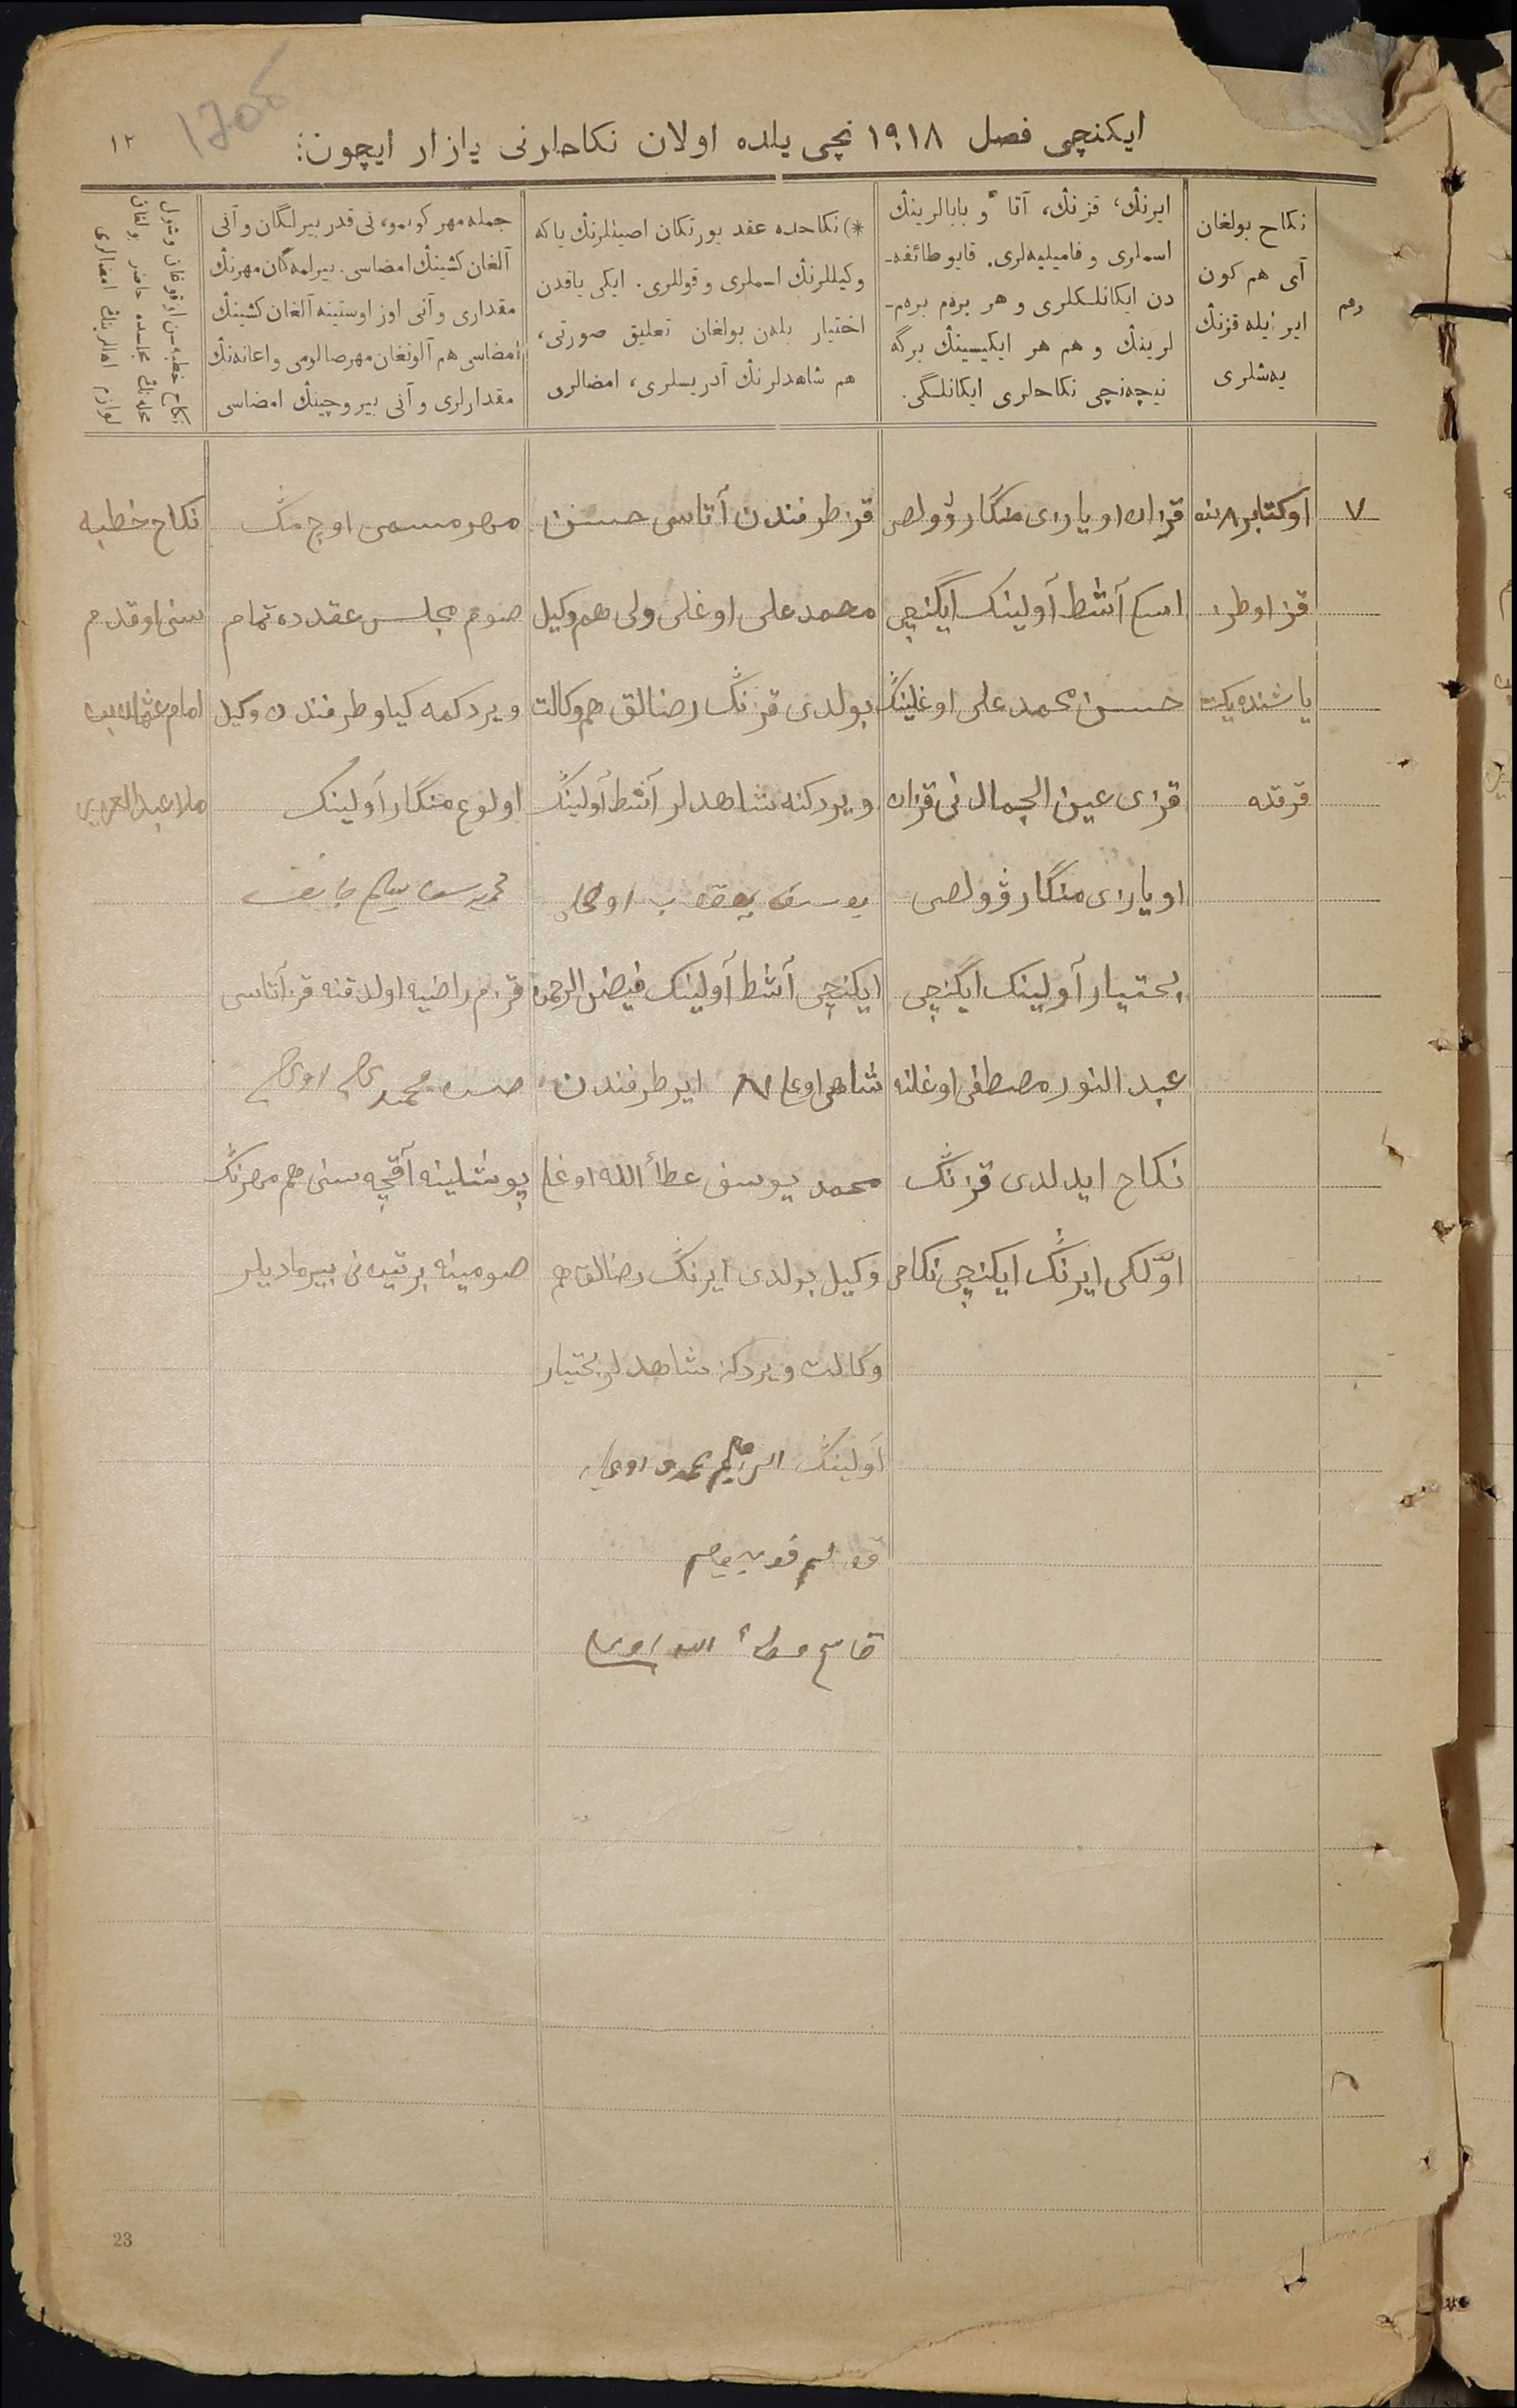 ایکنچی فصل ۱۹۱۸ نچی یلده اولان نکاحلرنی یازار ایچون:
۱۲
رقم
نکاح بولغان
آی هم کون
ایر ایله قزنڭ
یەشلری
ایرنڭ، قزنڭ، آتا و بابالرینڭ
اسملری و فامیلیەلری. قایو طائفه‌ـ
دن ایکانلکلری و هر برەم برەم‌ـ
لرینڭ و هم هر ایکیسینڭ برگه
نیچەنچی نکاحلری ایکانلگی.
*) نکاحده عقد یورتکان اصیللرنڭ یاکه
وکیللرنڭ اسملری و قوللری. ایکی یاقدن
اختیار بلەن بولغان تعلیق صورتی،
هم شاهدلرنڭ آدریسلری، امضالری
جمله مهر کوبمو، نی قدر بیرلگان و آنی
آلغان کشینڭ امضاسی. بیرلمەگان مهرنڭ
مقداری و آنی اوز اوستینه آلغان کشینڭ
امضاسی هم آلونغان مهرصالومی و اعانەنڭ
مقدارلری و آنی بیروچینڭ امضاسی
نکاح خطبه‌سن اوقوغان و شول
۷
اوکتابر ۸ نده
قز اوطز
یاشنده یکت
قرقده
قزان اویازی منگار وولصی
آشط آولینڭ ایکنچی
حسن محمدعلی اوغلینڭ
قزی عین الجمال نی قزان
اویازی منگار وولصی
بختیار آولینڭ ایکنچی
عبد النور مصطفی اوغلنه
نکاح ایدلدی قزنڭ
اوّلکی ایرنڭ ایکنچی نکاحی
قز طرفندن آتاسی حسن
محمد علی اوغلی ولی هم وکیل
بولدی قزنڭ رضالق هم وکالت
ویردکنه شاهدلر آشط آولینڭ
یوسف یعقوب اوغلی
ایکنچی آشط آولینڭ فیض الرحمن
شاهی اوغلی ایر طرفندن
محمد یوسف عطأ الله اوغلی
وکیل بولدی ایرنڭ رضالق هم
وکالت ویردکنه شاهدلر بختیار
آولینڭ
قولم قویدم
قاسم عطأ الله اوغلی
مهر مسمی اوچ مڭ
صوم مجلس عقدده تمام
ویردکمه کیاو طرفندن وکیل
اولوغ منگار آولینڭ
قزم راضیه اولدقنه قز آتاسی
حسن محمد علی اوغلی
پوشلینه آقچه سنی هم مهرنڭ
صومینه بر تیەنی بیرمادیلر
نکاح خطبه
سنی اوقدم
امام
ملا عبد العزیز
23